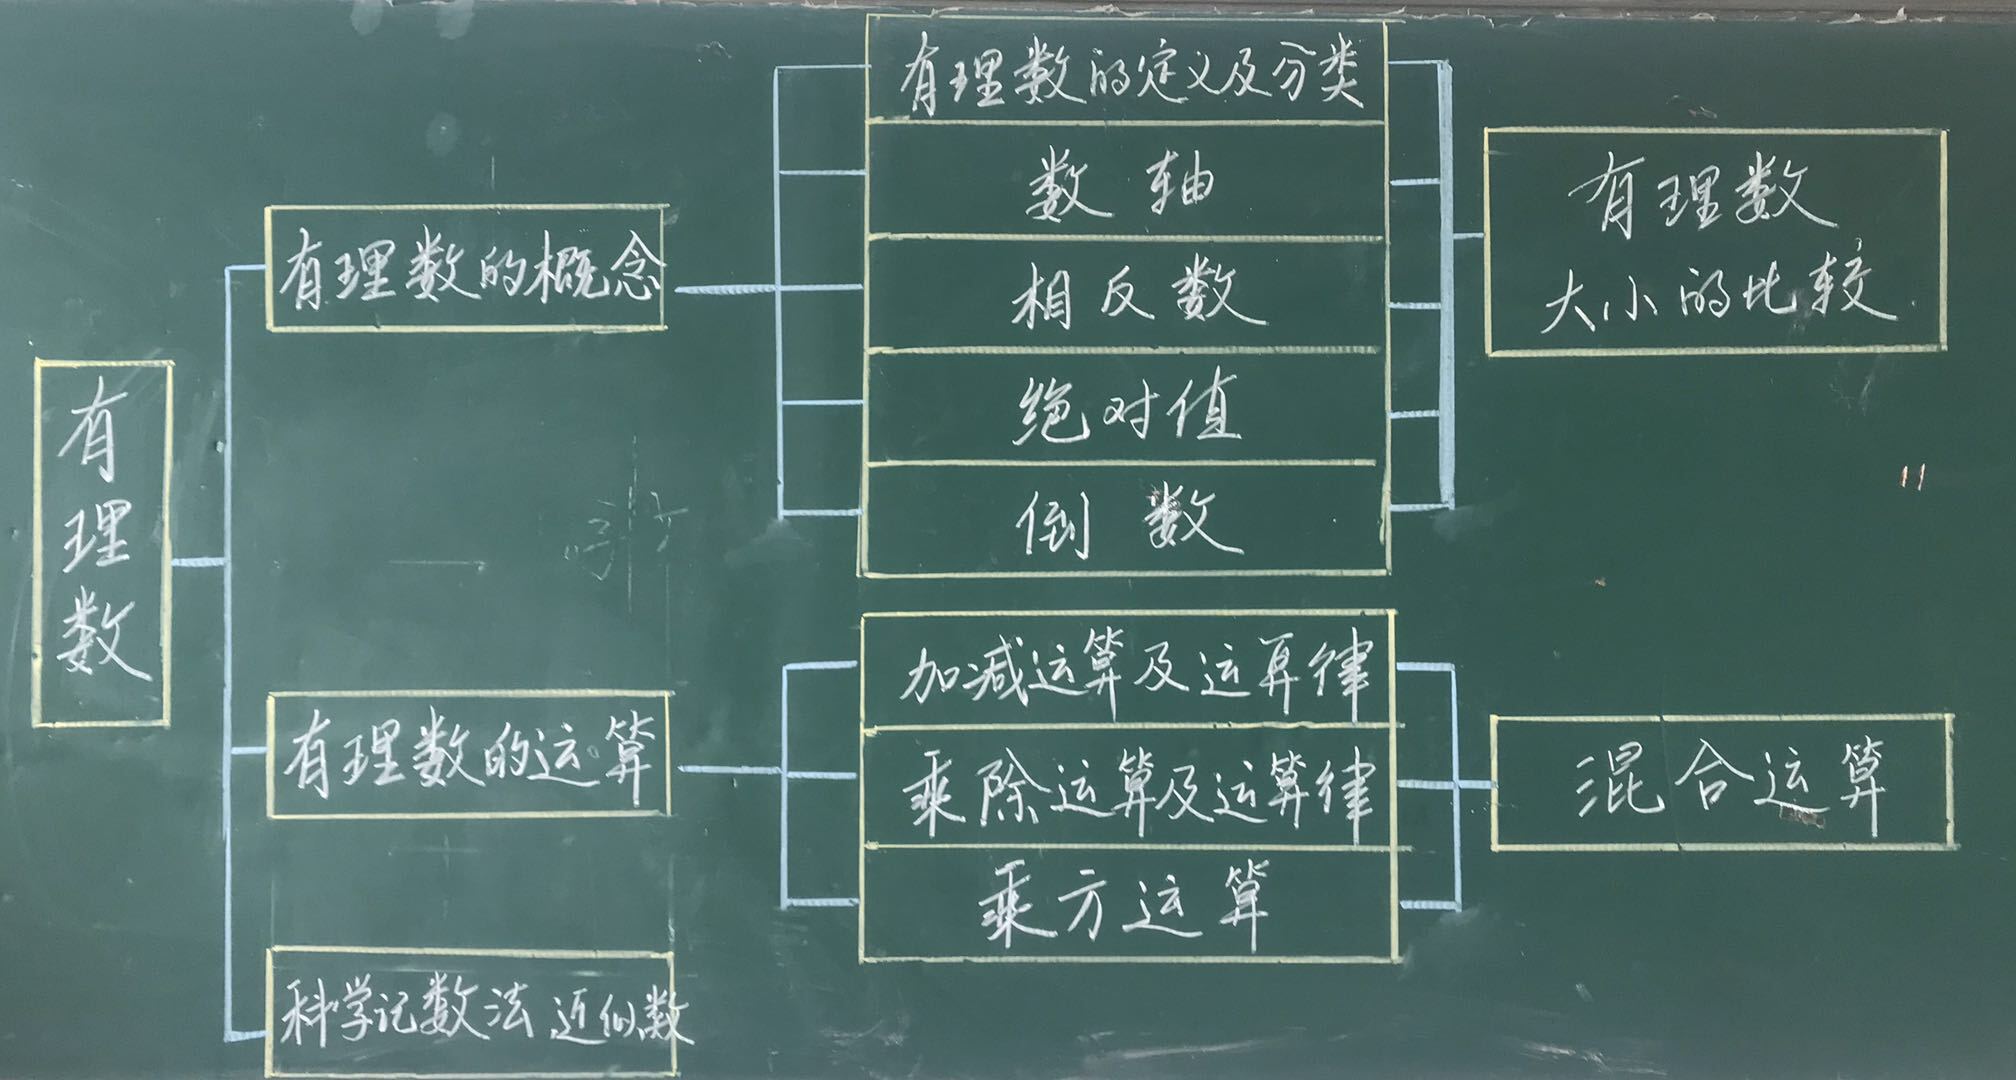 有理数
有理数的概念
有理数的定义及分类
数轴
相反数
绝对值
倒数
有理数
大小的比较
有理数的运算
加减运算及运算律
乘除运算及运算律
乘方运算
混合运算
科学记数法 近似数